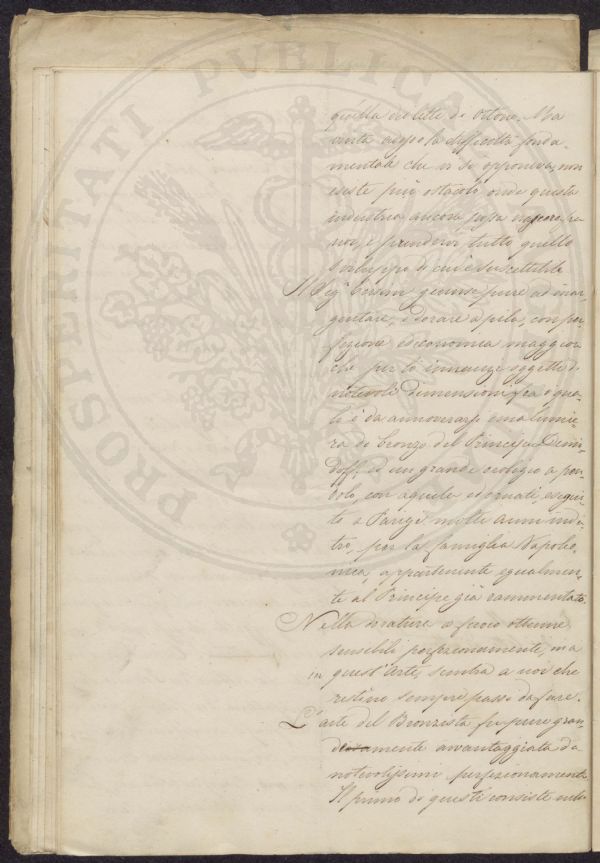 PROSPERITATI PUBLICAE
quella violetta di Ottone. Ma
vinta la difficoltà fonda-
mentale che vi si opponeva, non
esiste più ostacolo onde questa
industria, ancora, possa
noi, e prendervi tutto quello
sviluppo di cui è suscettibile
Il Sigr giunse pure ad inar-
gentare, e dorare a pila, con per-
fezione ed economia maggiore
che per lo innanzi oggetti di
notevoli dimensioni fra i qua-
li è da annoverarsi una lumie-
ra di bronzo del Principe Demi-
doff, ed un grande orologio a pen-
dolo, con aquile ed ornati, esegui-
to a Parigi molti anni indie-
tro, per la famiglia Napoleo-
nica, appartenente egualmen-
te al Principe già rammentato.
Nella doratura a fuoco ottenne
sensibili perfezionamenti, ma
in quest'Arte, sembra a noi che
restino sempre passi da fare.
L'arte del Bronzista fu pure gran-
demente avvantaggiata da
notevolissimi perfezionamenti.
Il primo di questi consiste nel-